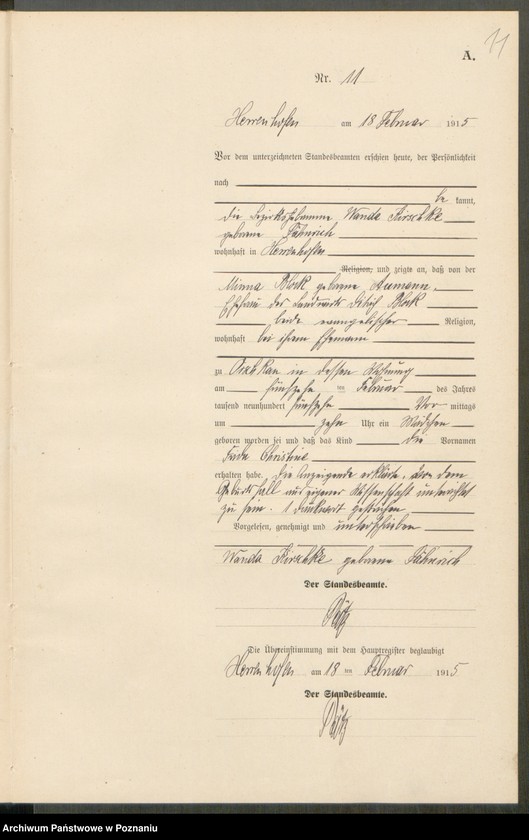 11
A.
Nr. 11
Herrenhofen am 18 Februar 1915
Vor dem unterzeichneten Standesbeamten erschien heute, der Persönlichkeit
nach
be kannt,
die Bezirkshebamme Wanda Kirschke
geborene Fähnrich
wohnhaft in Herrenhofen
Religion, und zeigte an, daß von der
Minna Block geborene Aumann,
Ehefrau des Landwirts Block
beide evangelischer Religion,
wohnhaft bei ihrem Ehemann
zu in dessen Wohnung
am fünfzehn ten Februar des Jahres
tausend neunhundert fünfzehn Vor mittags
um zehn Uhr ein Mädchen
geboren worden sei und daß das Kind die Vornamen
Christine
erhalten habe. Die Anzeigende erklärte, von dem
Geburtsfall aus eigener Wissenschaft unterrichtet
zu sein. 1 Druckwort gestrichen
Vorgelesen, genehmigt und unterschrieben
Wanda Kirschke geborene Fähnrich
Der Standesbeamte.
Die Übereinstimmung mit dem Hauptregister beglaubigt
Herrenhofen am 18 ten Februar 1915
Der Standesbeamte.
Archiwum Państwowe w Poznaniu